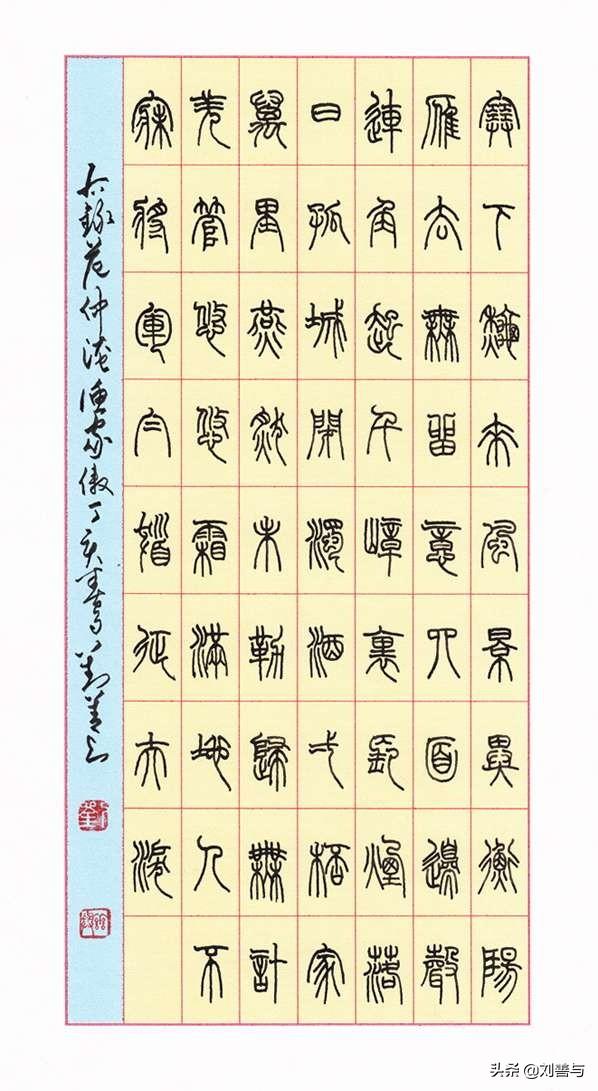 塞下秋來風景異衡陽
雁去無留意四面邊聲
連角起千嶂裏長煙落
日孤城閉濁酒弌桮家
萬里燕然未勒歸無計
羌管悠悠霜滿地人不
寐將軍白髮征夫淚
右錄范仲淹漁家傲丁亥書劉善与
头条 @刘善与